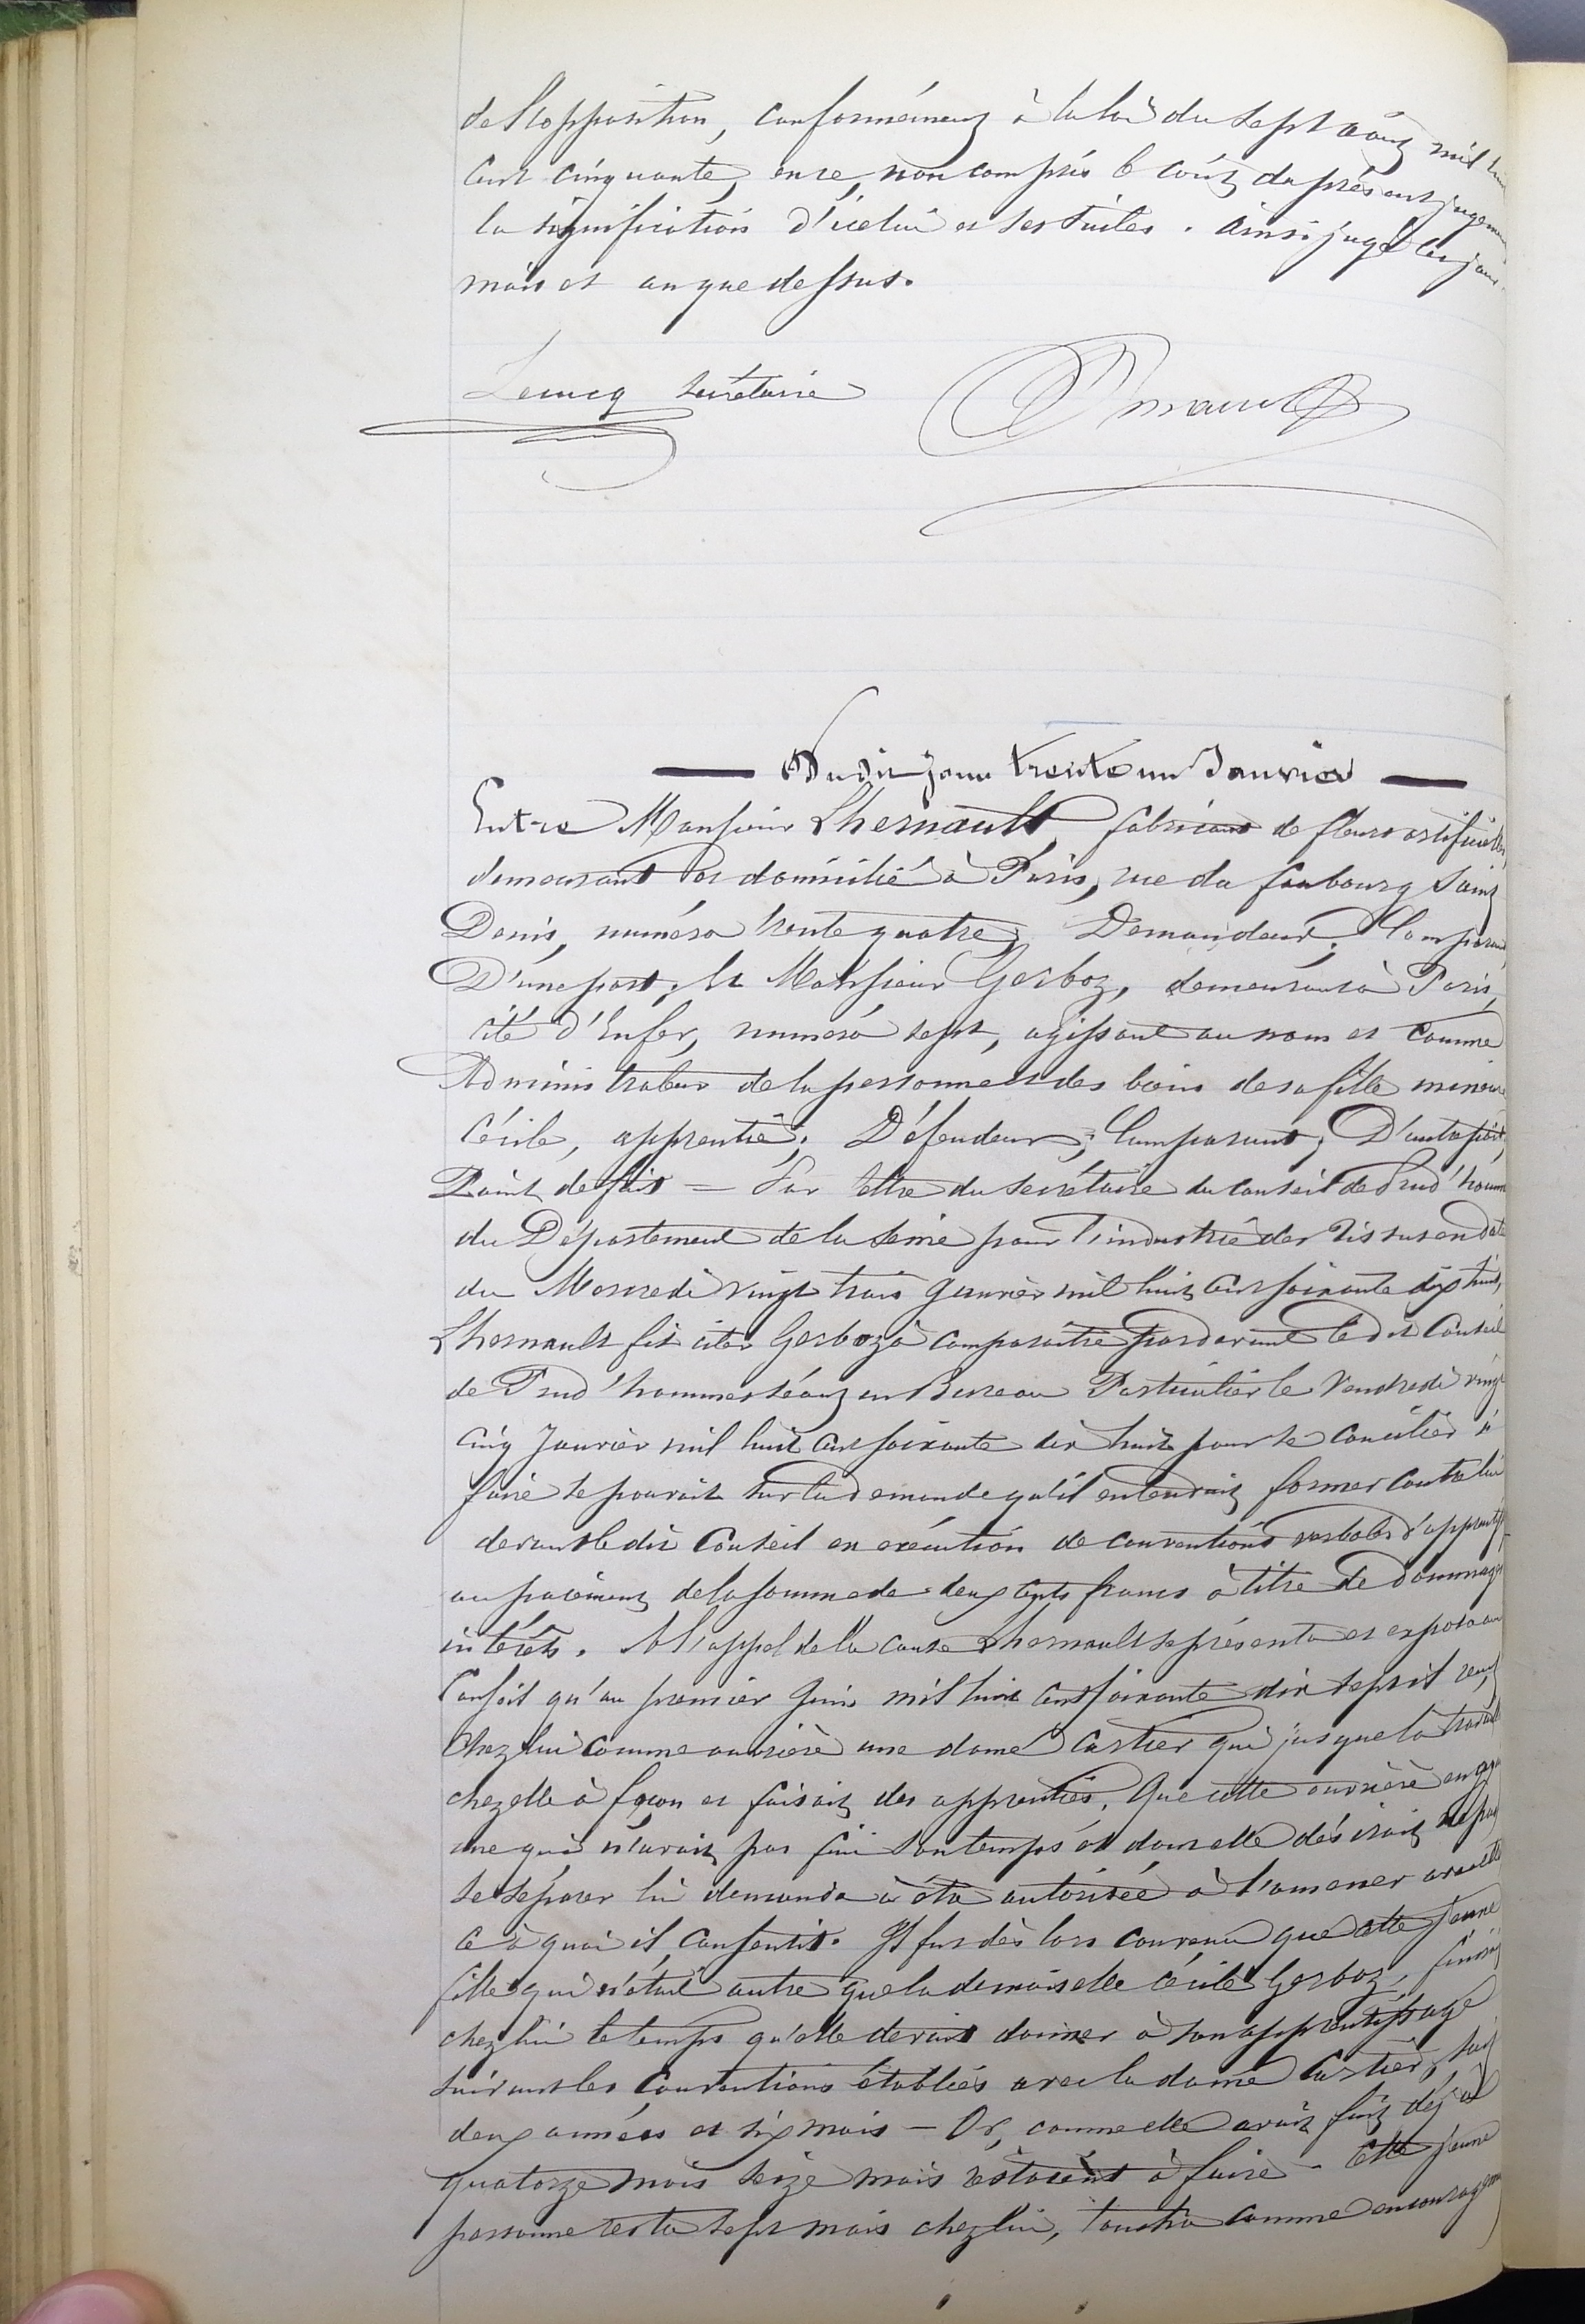 de l'opposition, conformément à la loi du sept août mil huit
cent cinquante, en ce, non compris le coût du présent jugement
la signification d'icelui et ses suites. Ainsi jugé les jour
mois et an que dessus.
Lecucq secrétaire
Dudit jour trente un Janvier
Entre Monsieur Lhernault, fabricant de fleurs artificielles
demeurant et domicilié à Paris, rue du faubourg Saint
Denis, numéro trente quatre, Demandeur; Comparant
D'une part; Et Monsieur Gerboz, demeurant à Paris,
cité d'Enfer, numéro sept, agissant au nom et comme
Administrateur de la personne et des biens de sa fille mineure
Cécile, apprentie; Défendeur; Comparant; D'autre part;
Point de fait = Par lettre du secrétaire du Conseil de Prud'hommes
du Département de la Seine pour l'industrie des Tissus en date
du Mercredi vingt trois Janvier mil huit cent soixante dix huit,
Lhernault fit citer Gerboz à comparaître pardevant le dit Conseil
de Prud'hommes séant en Bureau Particulier le Vendredi vingt
cinq Janvier mil huit cent soixante dix huit pour se concilier si
faire se pouvait sur la demande qu'il entendait former contre lui
devant le dit Conseil en exécution de conventions verbales d'apprentissage
au paiement de la somme de deux cents francs à titre de dommages
intérêts. A l'appel de la cause Lhernault se présenta et exposa au
Conseil qu'au premier Juin mil huit cent soixante dix sept il reçut
chez lui comme ouvrière une dame Cartier qui jusque là travaillait
chez elle à façon et faisait des apprenties. Que cette ouvrière en ayant
une qui n'avait pas fini son temps et dont elle désirait ne pas
se séparer lui demanda à être autorisée à l'amener avec elle
ce à quoi il consentit. Il fut dès lors convenu que cette jeune
fille qui n'était autre que la demoiselle Cécile Gerboz, finirait
chez lui le temps qu'elle devait donner à son apprentissage
suivant les conventions établies avec la dame Cartier, soit
deux années et six mois - Or, comme elle avait fait déjà
quatorze mois seize mois restaient à faire - Cette jeune
personne resta sept mois chez lui, toucha comme encouragement